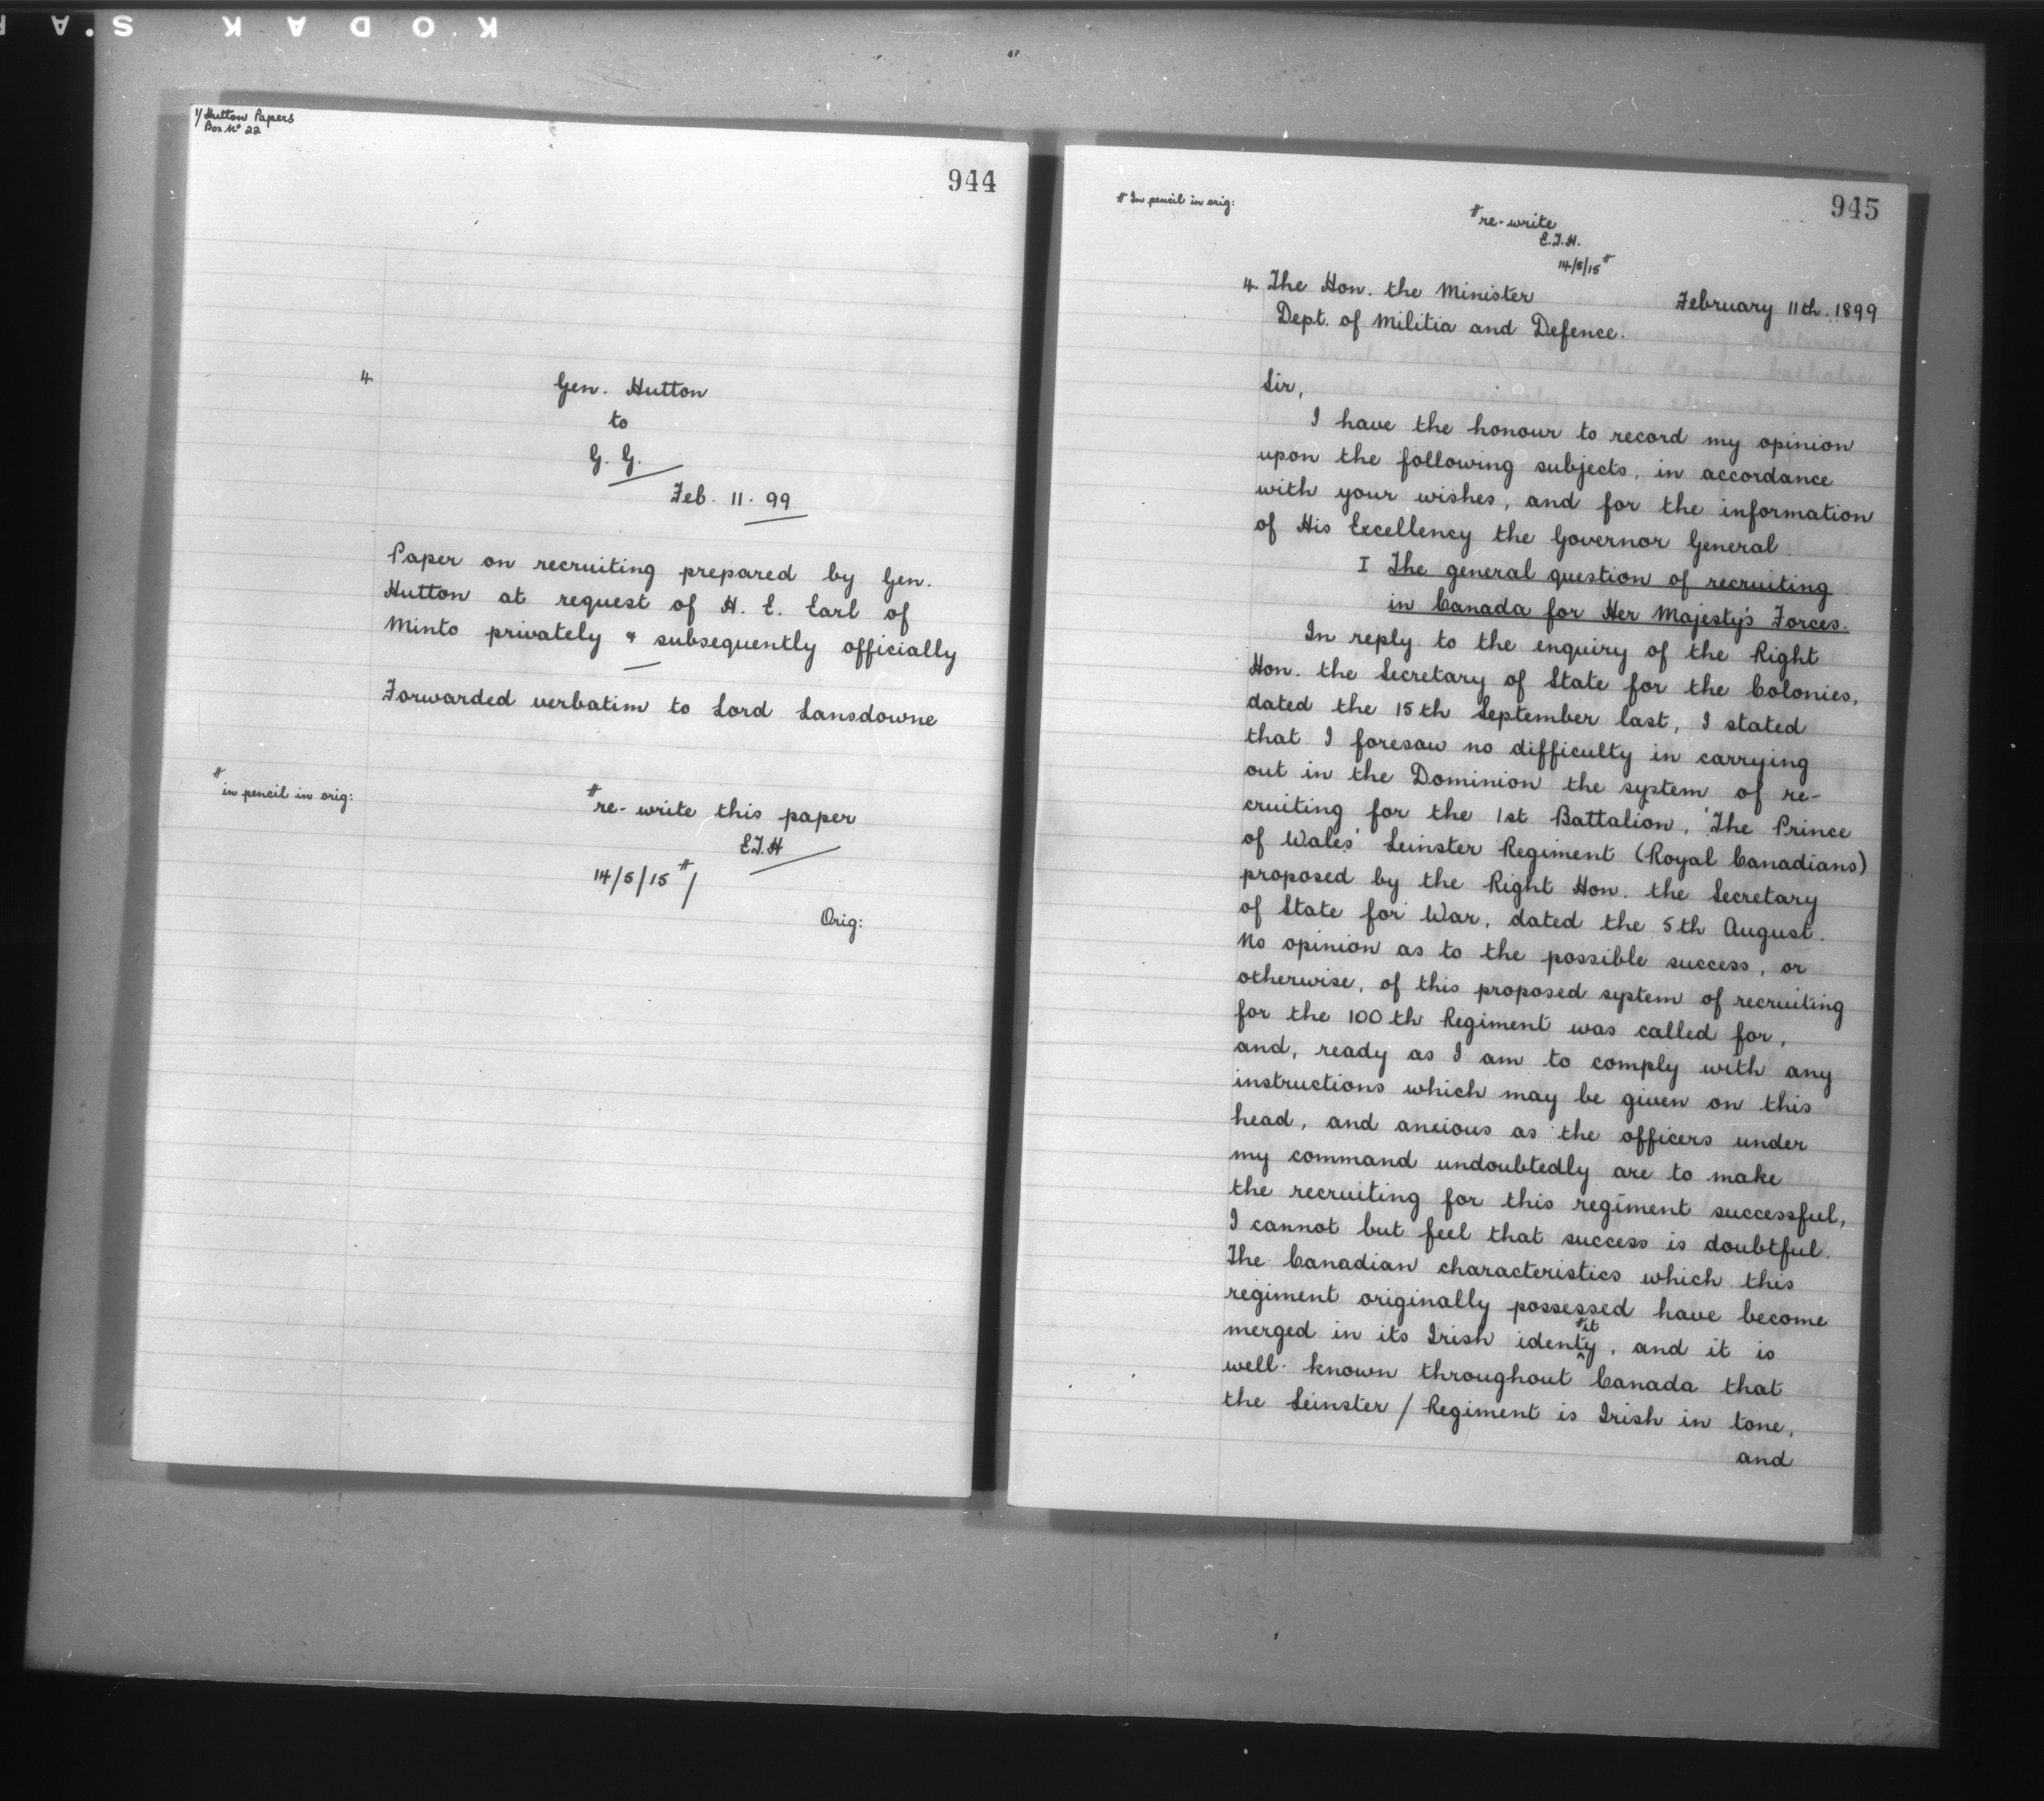 KODAK S.A
1/ Hutton Papers
Box No 22
944
4.
Gen. Hutton
to
G. G.
Feb. 11. 99
Paper on recruiting prepared by Gen.
Hutton at request of H. E. Earl of
Minto privately & subsequently officially
Forwarded verbatim to Lord Lansdowne
# in pencil in orig:
# re-write this paper
E.T.H
14/5/15 # /
Orig:
945
# In pencil in orig:
# re-write
E.T.H.
14/5/15 #
4. The Hon. the Minister February 11th. 1899
Dept. of Militia and Defence.
Sir,
I have the honour to record my opinion
upon the following subjects, in accordance
with your wishes, and for the information
of His Excellency the Governor General.
I The general question of recruiting
in Canada for Her Majesty's Forces.
In reply to the enquiry of the Right
Hon. the Secretary of State for the Colonies,
dated the 15th September last, I stated
that I foresaw no difficulty in carrying
out in the Dominion the system of re-
cruiting for the 1st Battalion, 'The Prince
of Wales' Leinster Regiment (Royal Canadians)
proposed by the Right Hon. the Secretary
of State for War, dated the 5th August.
No opinion as to the possible success, or
otherwise, of this proposed system of recruiting
for the 100th Regiment was called for,
and, ready as I am to comply with any
instructions which may be given on this
head, and anxious as the officers under
my command undoubtedly are to make
the recruiting for this regiment successful,
I cannot but feel that success is doubtful.
The Canadian characteristics which this
regiment originally possessed have become
# it
merged in its Irish identy, and it is
well-known throughout Canada that
the Leinster / Regiment is Irish in tone,
and